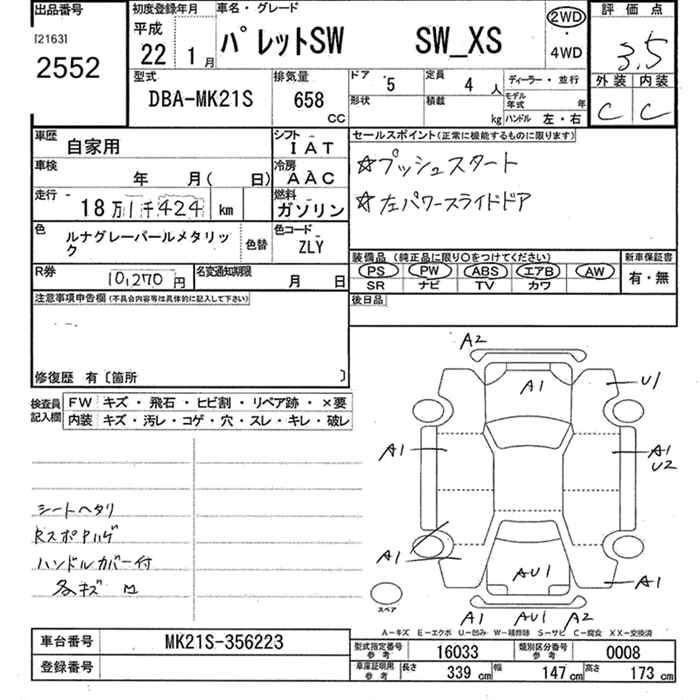 出品番号 初度登録年月 車名・グレード 2WD 評価点
[2163]
2552
平成 22 1月 パレットSW SW_XS ・ 4WD 3.5
型式 排気量 ドア 5 定員 4人 ディーラー・並行 外装 内装
DBA-MK21S 658 CC 形状 積載 kg モデル年式 年 C C
ハンドル 左・右
車歴 自家用 シフト IAT セールスポイント(正常に機能するものに限ります)
車検 年 月( 日) 冷房 AAC ☆プッシュスタート
走行 18万1千424 km 燃料 ガソリン ☆左パワースライドドア
色 ルナグレーパールメタリック 色替 色コード ZLY
装備品 (純正品に限り○をつけてください) 新車保証書
R券 10,270円 名変通知期限 月 日 PS PW ABS エアB AW 有・無
SR ナビ TV カワ
注意事項申告欄(不具合内容等は具体的に記入して下さい) 後日品
修復歴 有〔箇所 〕
検査員記入欄 FW キズ・飛石・ヒビ割・リペア跡・×要
内装 キズ・汚レ・コゲ・穴・スレ・キレ・破レ
A2
A1 U1
A1 A1
U2
シートヘタリ
ハンドルカバー付
A1 AU1 A1
スペア
A1 AU1 A2
A-キズ E-エクボ U-凹み W-補修跡 S-サビ C-腐食 XX-交換済
車台番号 MK21S-356223 型式指定番号 参考 16033 類別区分番号 参考 0008
登録番号 車庫証明用 参考 長さ 339cm 幅 147cm 高さ 173cm